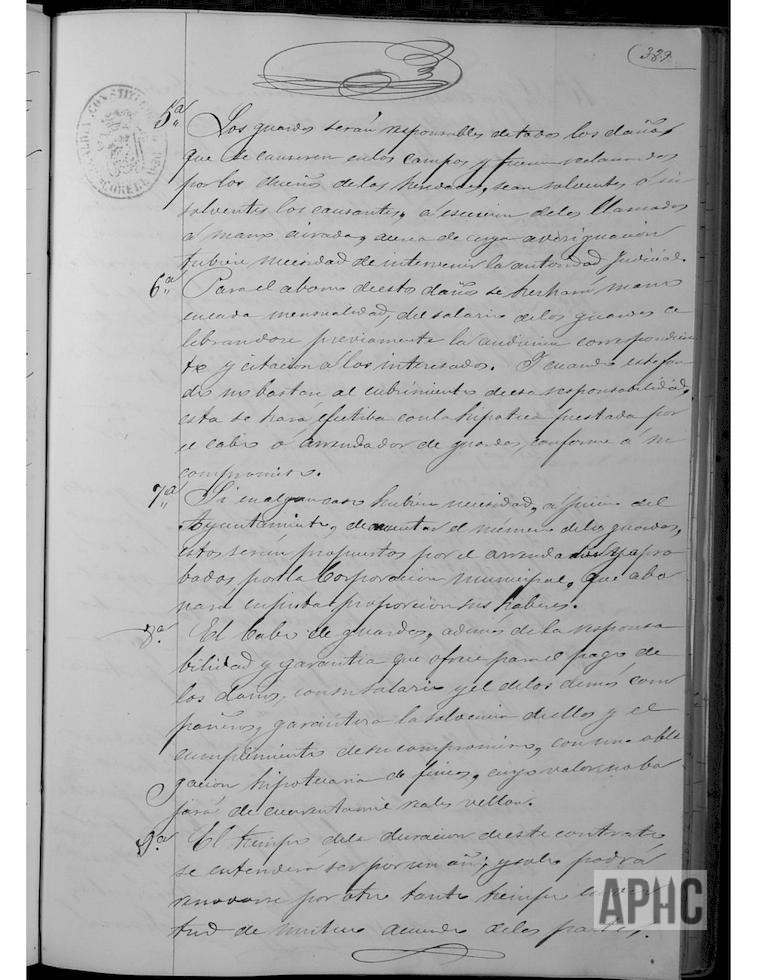 329
5ª Los guardas serán responsables de todos los daños
que se causaren en los campos y fueren reclamados
por los dueños de las heredades, sean solventes ó in
solventes los causantes, á escecion de los llamados
á mano airada, acerca de cuya averiguacion
tubiere necesidad de intervenir la autoridad Judicial.
6ª Para el abono de estos daños se hechará mano
en cada mensualidad, del salario de los guardas ce
lebrandose previamente la audiencia correspondien
te y citacion á los interesados. Y cuando este fon
do no bastare al cubrimiento de esa responsabilidad,
esta se hará efectiba con la hipoteca prestada por
el cabo ó arrendador de guardas, conforme á su
compromiso.
7ª Si en algun caso hubiere necesidad, á juicio del
Ayuntamiento, de aumentar el número de los guardas,
estos serán propuestos por el arrendador y apro
bados por la Corporacion municipal, que abo
nará en justa proporcion sus haberes.
8ª El Cabo de guardas, además de la responsa
bilidad y garantia que ofrece para el pago de
los daños, con su salario y el de los demás com
pañeros, garantira la solvencia de ellos y el
cumplimiento de su compromiso, con una obli
gacion hipotecaria de fincas, cuyo valor no ba
jará de cuarenta mil reales vellon.
9ª El tiempo de la duracion de este contrato
se entenderá ser por un año; y solo podrá
renovarse por otro tanto tiempo en vir
tud de mutuo acuerdo de las partes.
APHC